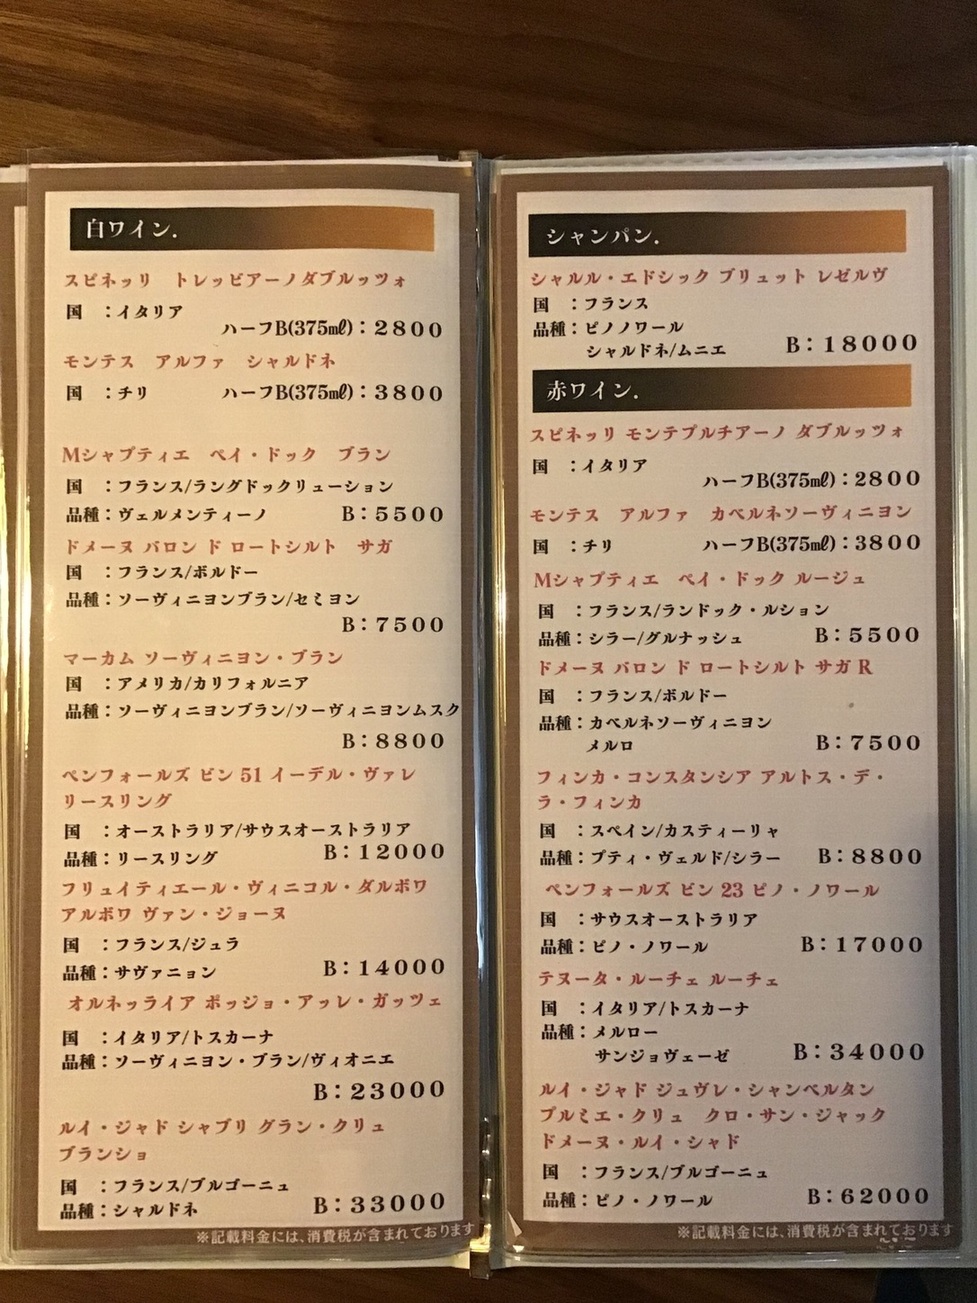 白ワイン.
スピネッリ　トレッビアーノダブルッツォ
国　：イタリア
ハーフB(375㎖)：2800
モンテス　アルファ　シャルドネ
国　：チリ　ハーフB(375㎖)：3800
Mシャプティエ　ペイ・ドック　ブラン
国　：フランス/ラングドックリューション
品種：ヴェルメンティーノ　B：5500
ドメーヌ バロン ド ロートシルト　サガ
国　：フランス/ボルドー
品種：ソーヴィニヨンブラン/セミヨン
B：7500
マーカム ソーヴィニヨン・ブラン
国　：アメリカ/カリフォルニア
品種：ソーヴィニヨンブラン/ソーヴィニヨンムスク
B：8800
ペンフォールズ ビン 51 イーデル・ヴァレ
リースリング
国　：オーストラリア/サウスオーストラリア
品種：リースリング　B：12000
フリュイティエール・ヴィニコル・ダルボワ
アルボワ ヴァン・ジョーヌ
国　：フランス/ジュラ
品種：サヴァニョン　B：14000
オルネッライア ポッジョ・アッレ・ガッツェ
国　：イタリア/トスカーナ
品種：ソーヴィニヨン・ブラン/ヴィオニエ
B：23000
ルイ・ジャド シャブリ グラン・クリュ
ブランショ
国　：フランス/ブルゴーニュ
品種：シャルドネ　B：33000
※記載料金には、消費税が含まれております
シャンパン.
シャルル・エドシック ブリュット レゼルヴ
国　：フランス
品種：ピノノワール
シャルドネ/ムニエ　B：18000
赤ワイン.
スピネッリ モンテプルチアーノ ダブルッツォ
国　：イタリア
ハーフB(375㎖)：2800
モンテス　アルファ　カベルネソーヴィニヨン
国　：チリ　ハーフB(375㎖)：3800
Mシャプティエ　ペイ・ドック ルージュ
国　：フランス/ランドック・ルション
品種：シラー/グルナッシュ　B：5500
ドメーヌ バロン ド ロートシルト サガ R
国　：フランス/ボルドー
品種：カベルネソーヴィニヨン
メルロ　B：7500
フィンカ・コンスタンシア アルトス・デ・
ラ・フィンカ
国　：スペイン/カスティーリャ
品種：プティ・ヴェルド/シラー　B：8800
ペンフォールズ ビン 23 ピノ・ノワール
国　：サウスオーストラリア
品種：ピノ・ノワール　B：17000
テヌータ・ルーチェ ルーチェ
国　：イタリア/トスカーナ
品種：メルロー
サンジョヴェーゼ　B：34000
ルイ・ジャド ジュヴレ・シャンベルタン
プルミエ・クリュ　クロ・サン・ジャック
ドメーヌ・ルイ・シャド
国　：フランス/ブルゴーニュ
品種：ピノ・ノワール　B：62000
※記載料金には、消費税が含まれております